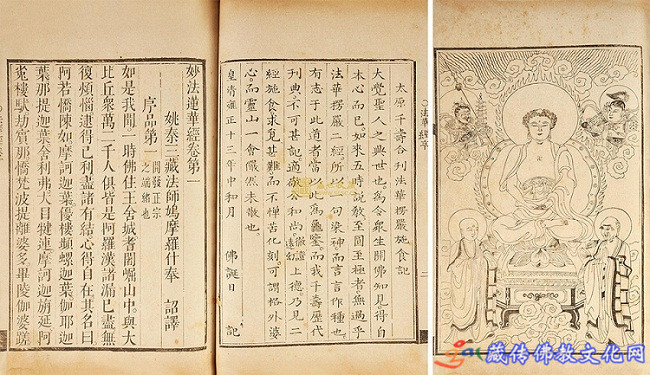 太原千壽合刊法華楞嚴施食記
大覺聖人之興世也。為令眾生開佛知見得自
本心而已。如來五時說教至圓至極者。無過乎
法華楞嚴二經。所以一句染神。而言言作種也。
有志于此道者。當以此為龜鑒。而我千壽歷代
刊典。不可甚記。適敬公和尚上德。乃見二
經施食。求覓甚難。而不憚苦化刻。可謂格外婆
心。而靈山一會。儼然未散也。
皇清雍正十三年中和月 佛誕日 記
妙法蓮華經卷第一
姚秦三藏法師鳩摩羅什奉 詔譯
序品第一 開發正宗
之端緒也
如是我聞。一時佛住王舍城耆闍崛山中。與大
比丘眾萬二千人俱。皆是阿羅漢。諸漏已盡。無
復煩惱。逮得己利。盡諸有結。心得自在。其名曰
阿若憍陳如。摩訶迦葉。優樓頻螺迦葉。伽耶迦
葉。那提迦葉。舍利弗。大目犍連。摩訶迦旃延。阿
㝹樓馱。劫賓那。憍梵波提。離婆多。畢陵伽婆蹉
法華經序
二
藏传佛教文化网